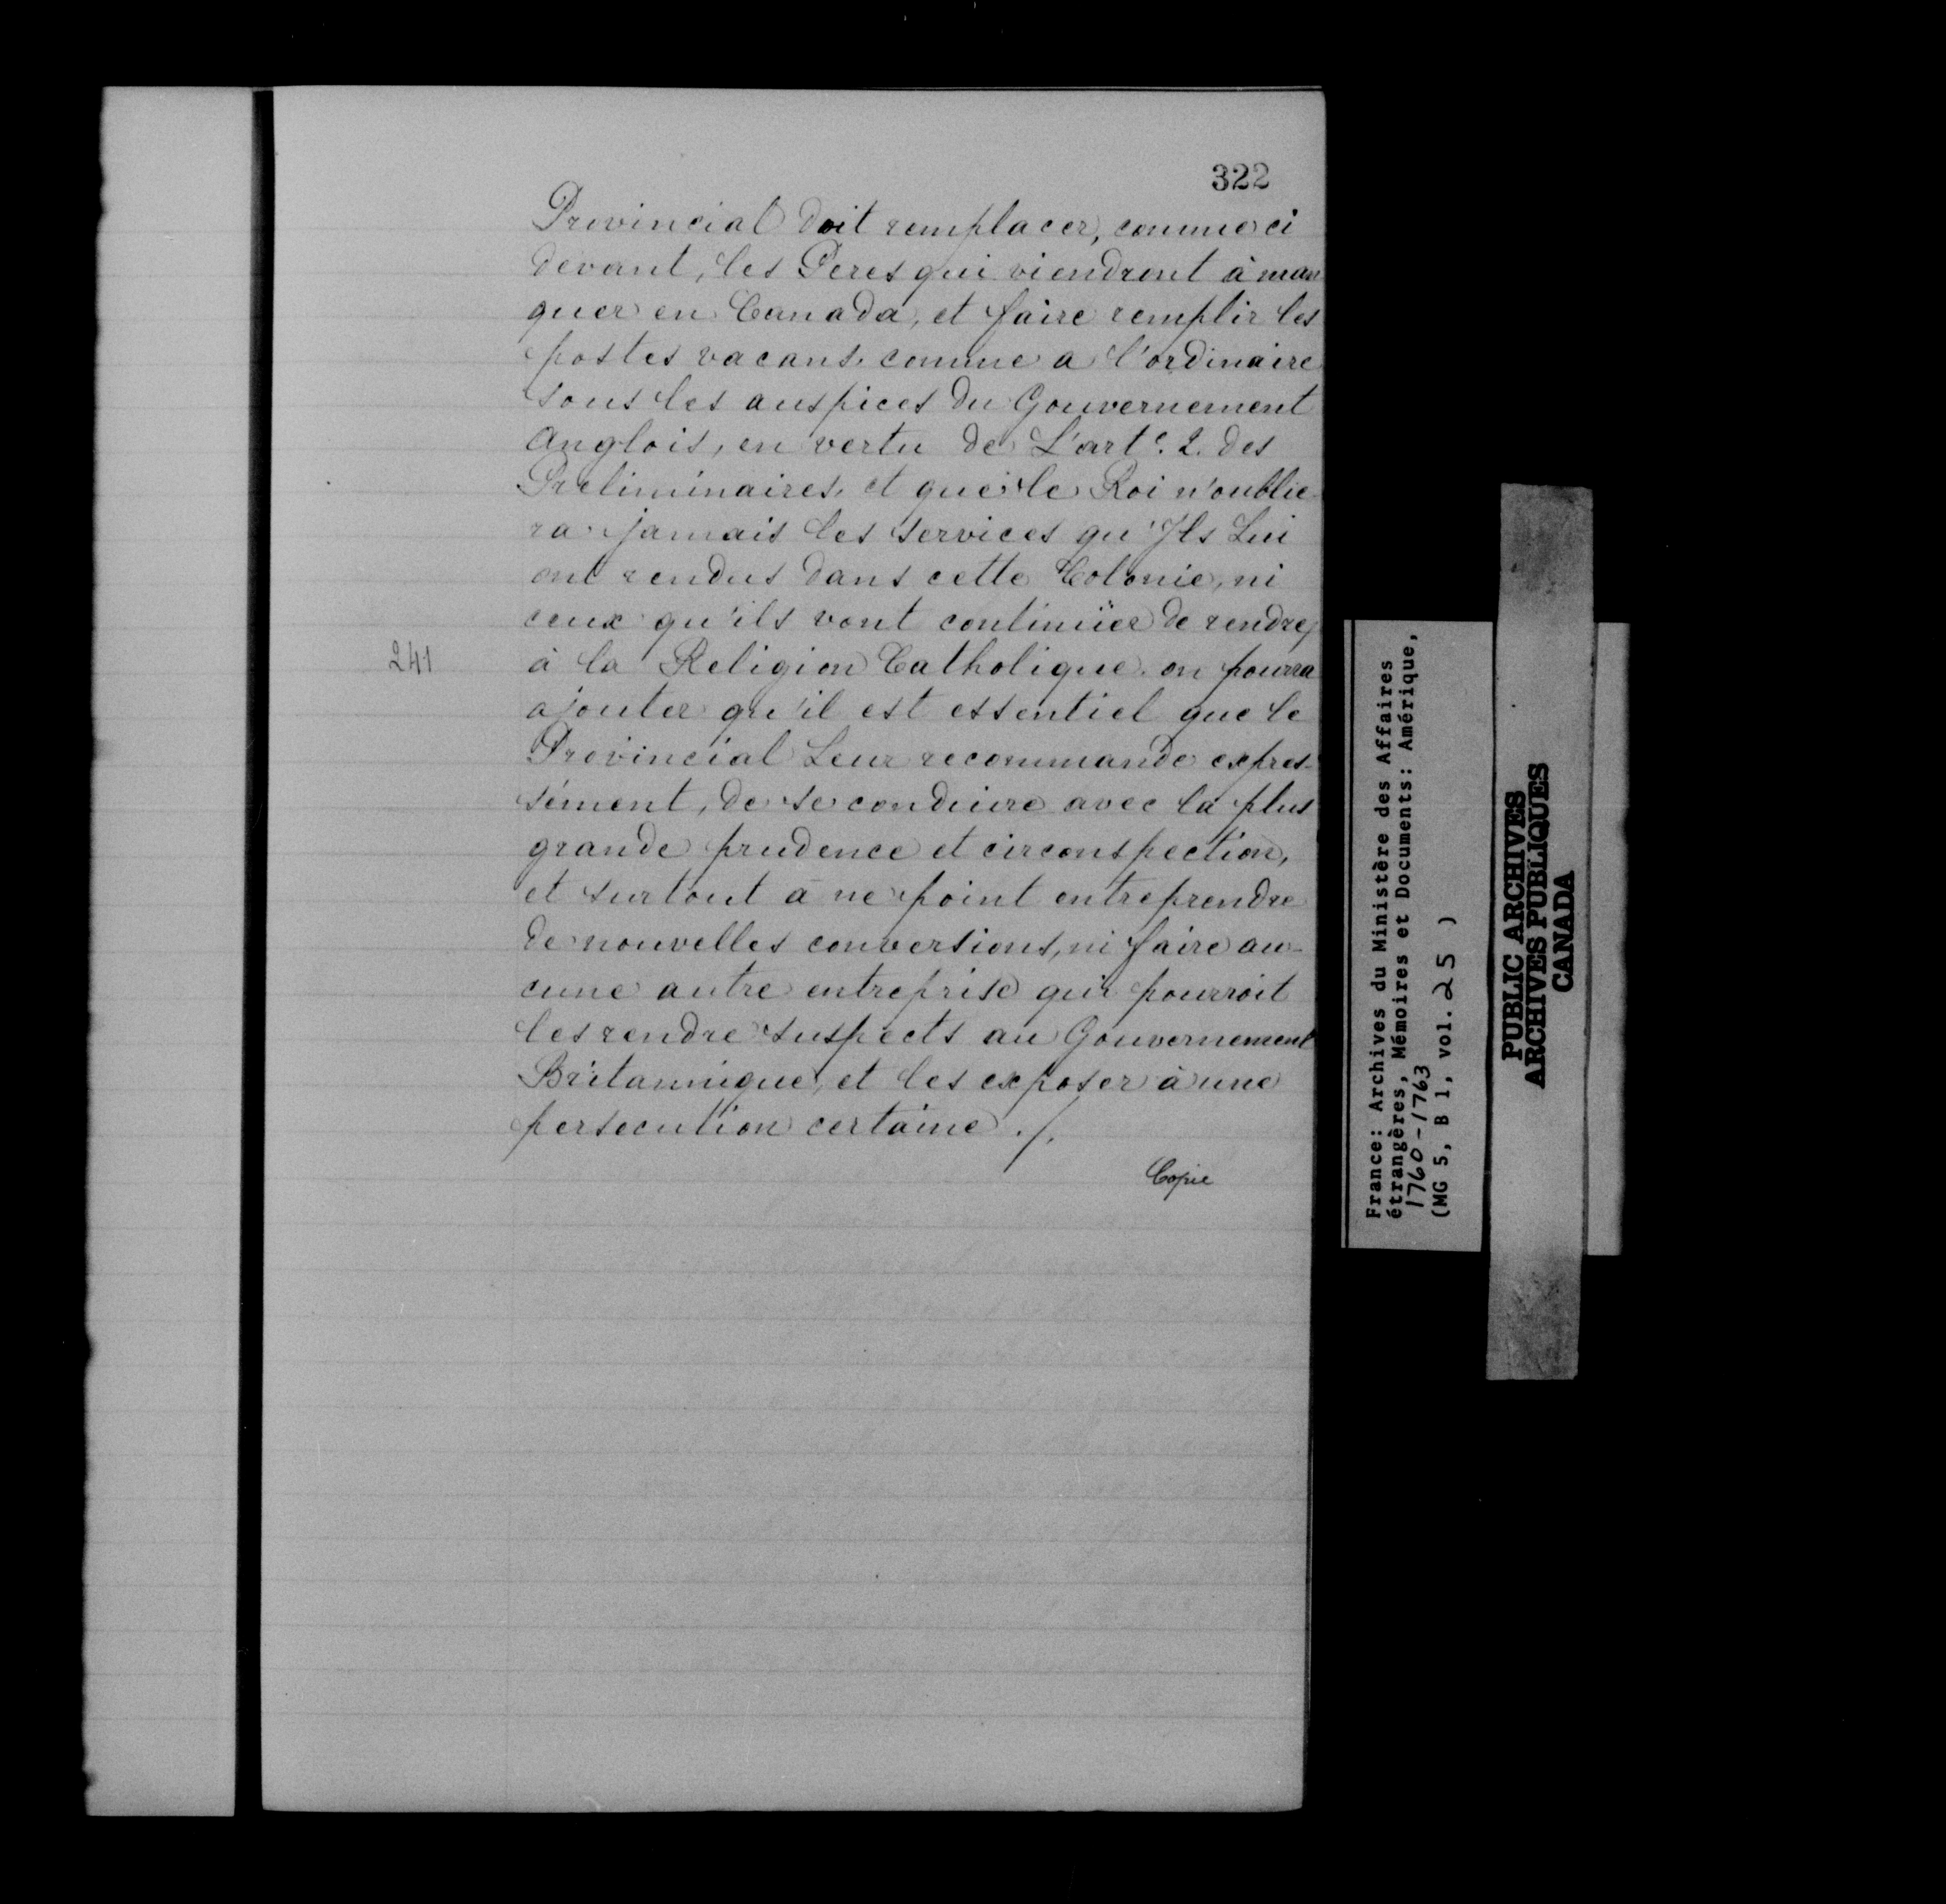 322
Provincial doit remplacer, comme ci
devant, les Peres qui viendront à man
quer en Canada, et faire remplir les
postes vacans. comme a l'ordinaire
sous les auspices du Gouvernement
Anglois, en vertu de L'artᵉ. 2. des
Preliminaires, et que le Roi n'oublie-
ra jamais les services qu'Ils Lui
ont rendus dans cette Colonie, ni
ceux qu'ils vont continüer de rendre,
241 à la Religion Catholique. on pourra
ajouter qu'il est essentiel que le
Provincial Leur recommande expres-
sément, de se conduire avec la plus
grande prudence et circonspection,
et surtout à ne point entreprendre
de nouvelles conversions, ni faire au-
cune autre entreprise qui pourroit
les rendre suspects au Gouvernement
Britannique, et les exposer à une
persecution certaine ./.
Copie
France: Archives du Ministère des Affaires
étrangères, Mémoires et Documents: Amérique,
1760-1763
(MG 5, B 1, vol. 25 )
PUBLIC ARCHIVES
ARCHIVES PUBLIQUES
CANADA